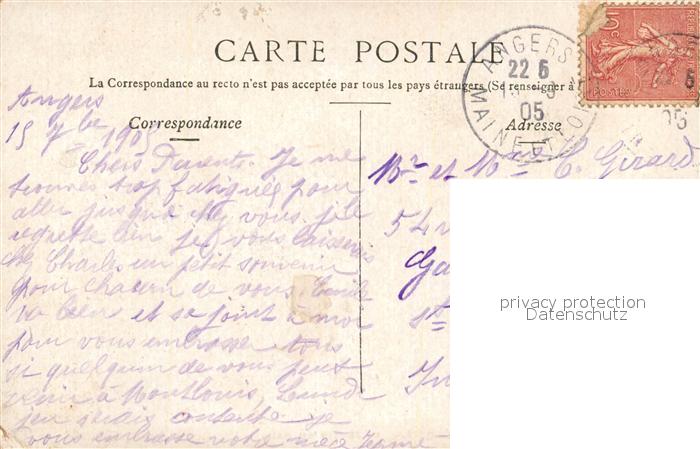 CARTE POSTALE
La Correspondance au recto n'est pas acceptée par tous les pays étrangers (Se renseigner à
Correspondance
Adresse
ANGERS
22 5
05
MAINE ET LO
POSTES
Angers
15 7bre 1905
Chers Parents. Je me
trouves trop fatiguée pour
aller jusqua chez vous. je le
regrette bien je vous laisserai
chez Charles un petit souvenir
pour chacun de vous. Emile
va bien et se joint à moi
pour vous embrasser tous
si quelqu'un de vous peut
venir à Montlouis, Lundi
jen serais contente je
vous embrasse votre nièce
Mr et Mme C. Girard
54
Ga
St
privacy protection
Datenschutz